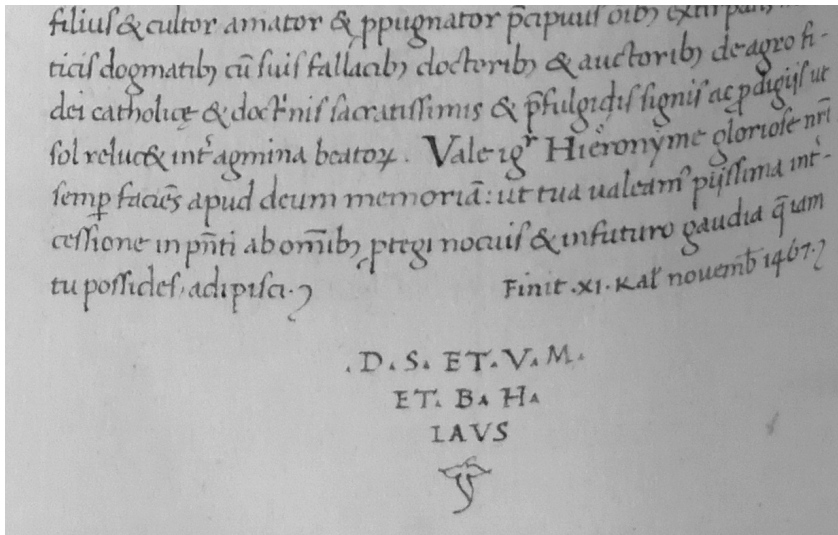 filius & cultor amator & ꝓpugnator p̄cipuus oīb⁊
ticis dogmatib⁊ cū suis fallacib⁊ doctorib⁊ & auctorib⁊ de agro fi-
dei catholicę & doctrinis sacratissimis & p̄fulgidis signis ac ꝓdigijs ut
sol reluc& int̄ agmina beatoꝝ. Vale igr̄ Hieronyme gloriose nr̄i
semꝑ faciēs apud deum memoriā: ut tua ualeamꝰ pijssima int̄-
cessione in pn̄ti ab om̄ib⁊ ꝓtegi nocuis & in futuro gaudia q̄ iam
tu possides, adipisci.
Finit .XI. Kal̄ nouemb̄ 1467.
.D. S. ET. V. M.
ET. B. H.
LAVS